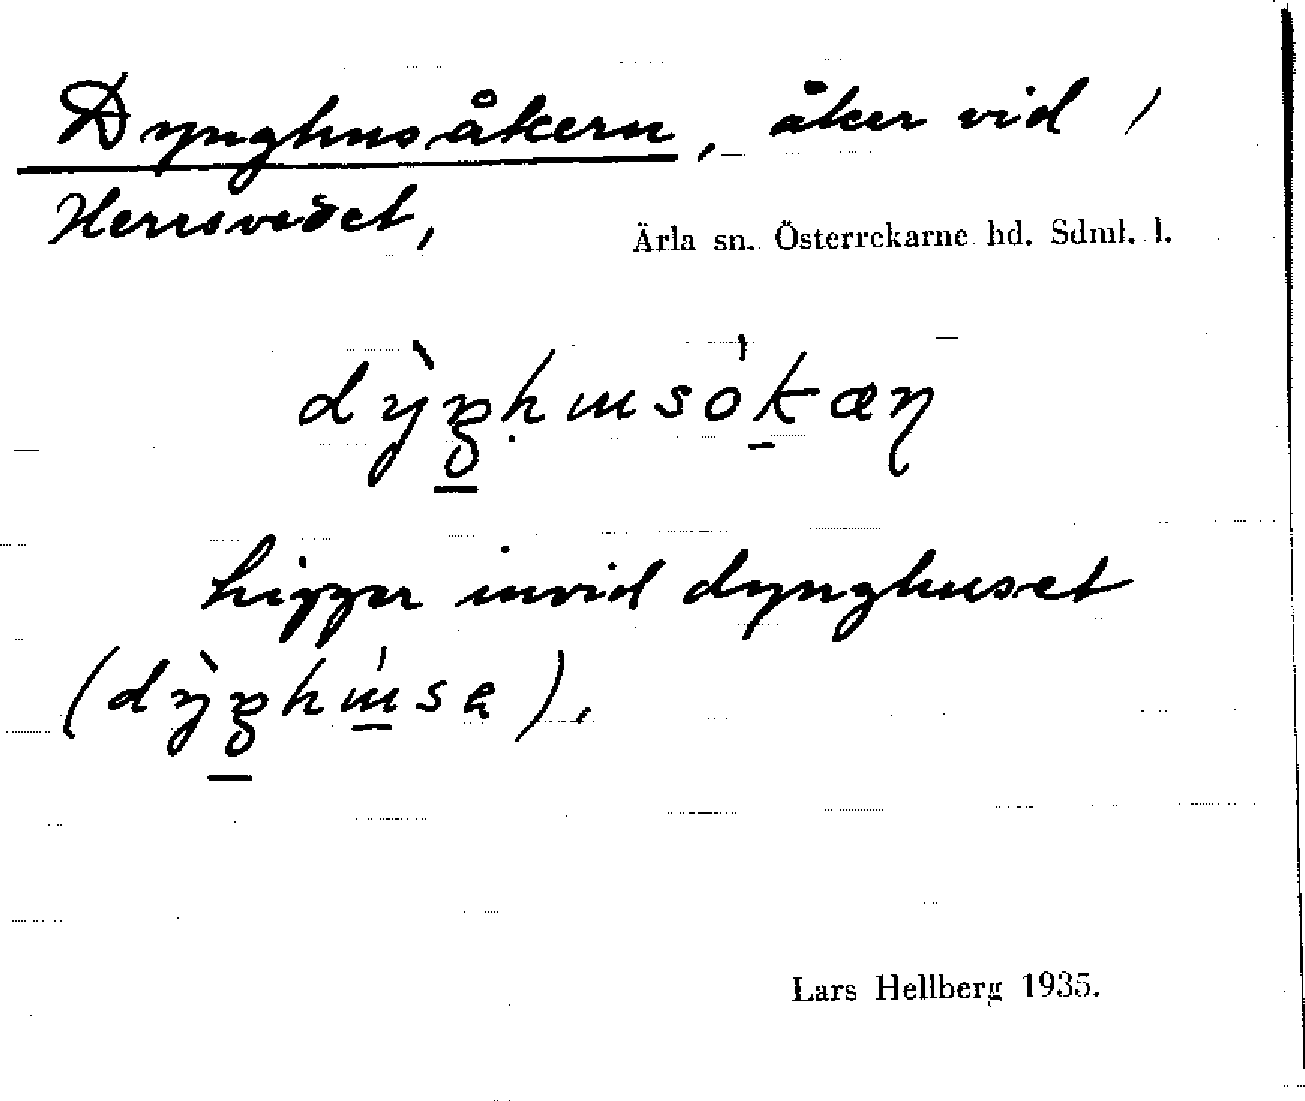 Dynghusåkern, åker vid
Herrsvedet,
Ärla sn. Österrekarne hd. Sdml. l.
Ligger invid dynghuset
Lars Hellberg 1935.